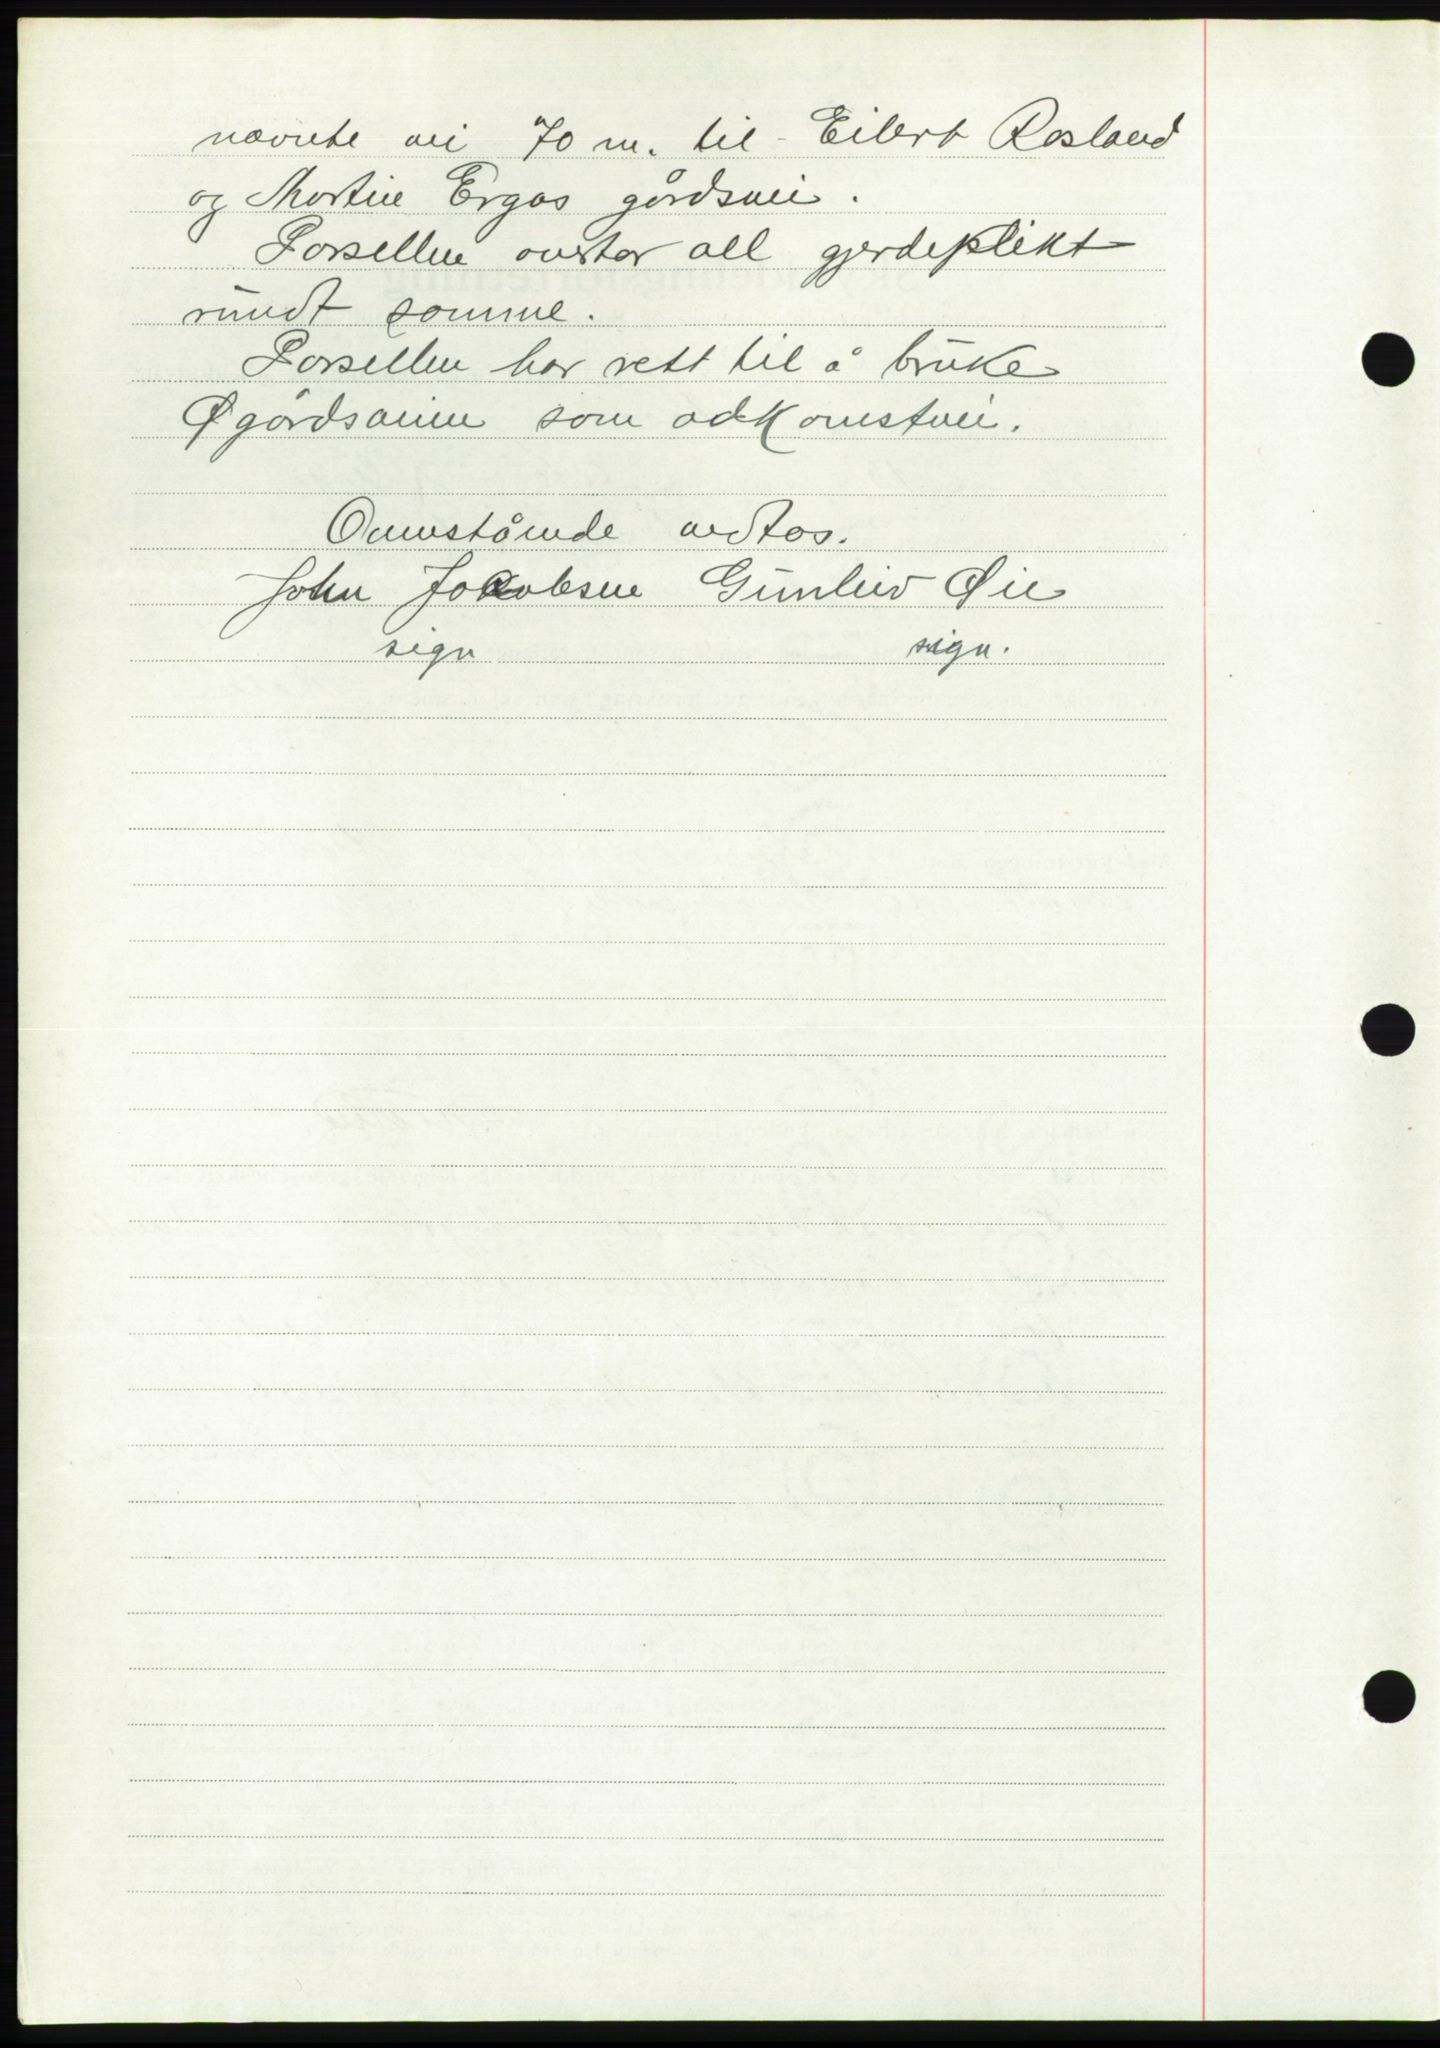 nævnte vei 70 m. til Eilert Rosland
og Martin Ergas gårdsvei.
Parsellen overtar all gjerdeplikt
rundt samme.
Parsellen har rett til å bruke
Øgårdsveien som adkomstvei.
Ovenstående vedtas.
John Jakobsen Gunleiv Øie
sign sign.